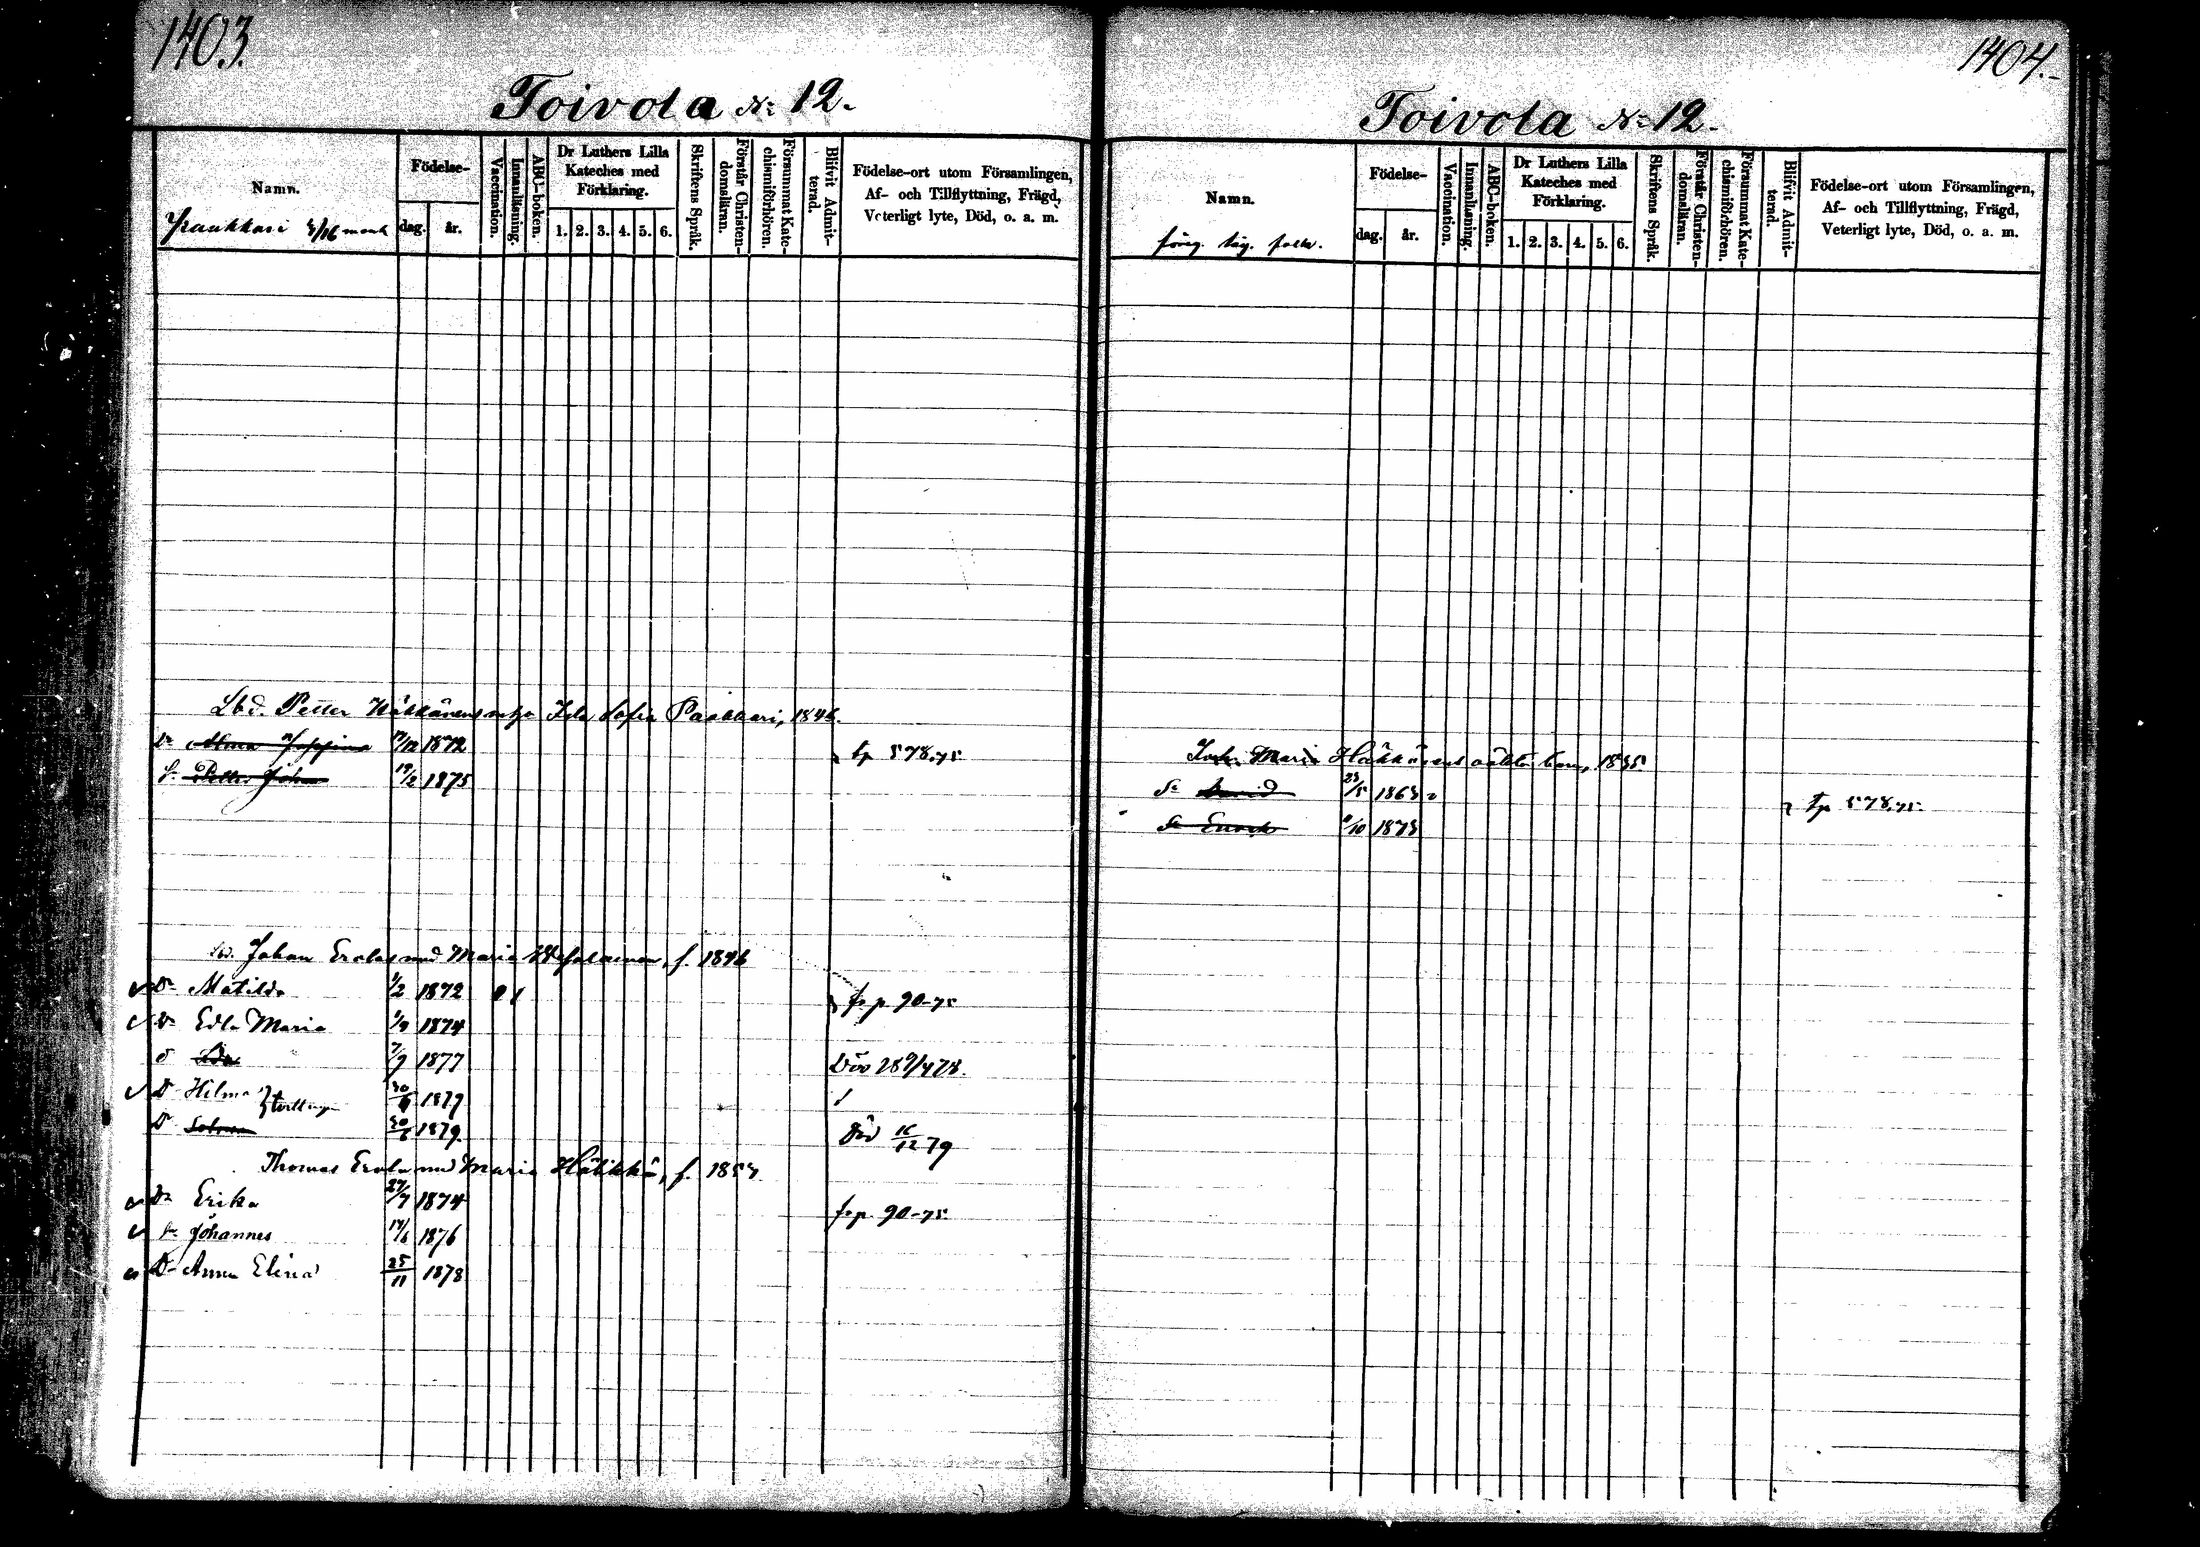 1403.
Toivola No 12.
Namn.
Födelse-
dag. år.
Vaccination.
Innanläsning.
ABC-boken.
Dr Luthers Lilla Kateches med Förklaring.
1. 2. 3. 4. 5. 6.
Skriftens Språk.
Förstår Christen-domsläran.
Försummat Kate-chismiförhören.
Blifvit Admit-terad.
Födelse-ort utom Församlingen,
Af- och Tillflyttning, Frägd,
Veterligt lyte, Död, o. a. m.
Paukkari
Petter Häkkänens Ida Sofia Paukkari, 1846.
Dr Alma Josefina 1872
Sn Petter Johan 19/2 1875
tp 578.75
Johan Erola und Maria f. 1846
Dr Matilda 1/2 1872
frp. 90-75
Dr Edla Maria 1/9 1874
D Ida 7/9 1877
Död
D Hilma } tvillingar 1879
D 1879 Död 16/12 79
Thomas Erola und Maria Häkkä, f.
Dr Erika 27/7 1874
frp. 90-75
Sn Johannes 14/6 1876
Dr Anna Elina 25/11 1878
1404.
Toivola No 12.
Namn.
Födelse-
dag. år.
Vaccination.
Innanläsning.
ABC-boken.
Dr Luthers Lilla Kateches med Förklaring.
1. 2. 3. 4. 5. 6.
Skriftens Språk.
Förstår Christen-domsläran.
Försummat Kate-chismiförhören.
Blifvit Admit-terad.
Födelse-ort utom Församlingen,
Af- och Tillflyttning, Frägd,
Veterligt lyte, Död, o. a. m.
Maria Häkkänens oäkta barn, 1835
Sn David 23/5 1863
tp 578.75.
Sn Enock 1873